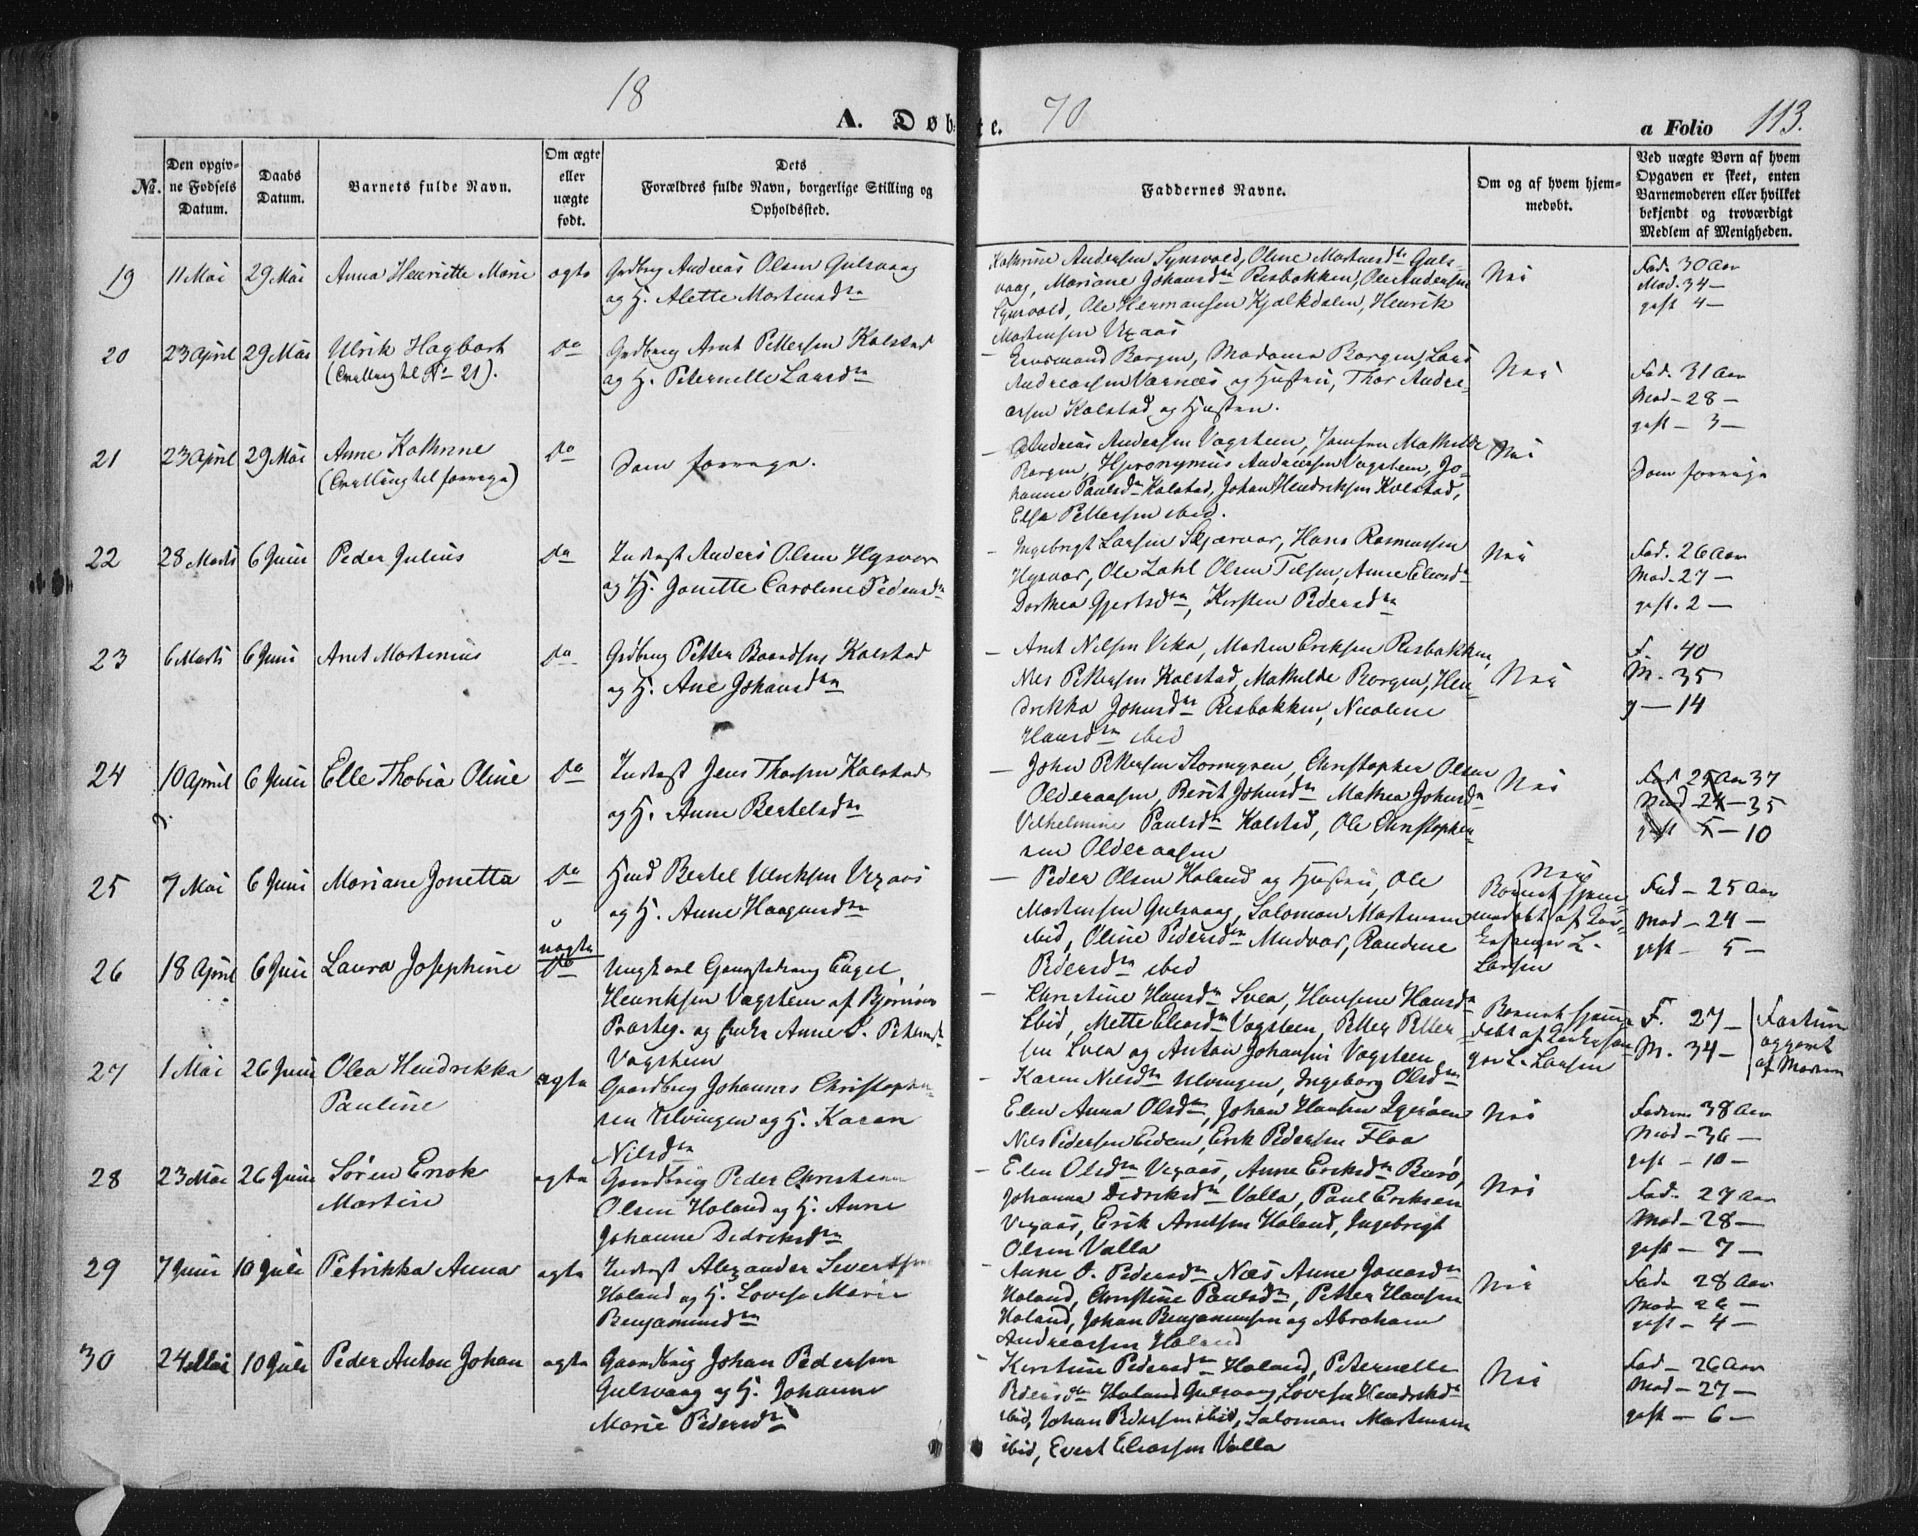 18
70
A. Døbte.
a Folio 113.
No.
Den opgiv-
ne Fødsels
Datum.
Daabs
Datum.
Barnets fulde Navn.
Om ægte
eller
uægte
født.
Dets
Forældres fulde Navn, borgerlige Stilling og
Opholdssted.
Faddernes Navne.
Om og af hvem hjem-
medøbt.
Ved uægte Børn af hvem
Opgaven er skeet, enten
Barnemoderen eller hvilket
bekjendt og troværdigt
Medlem af Menigheden.
19 11 Mai 29 Mai Anna Henriette Marie ægte
Grdbrg Andreas Olsen Gulsvaag
og H. Alette Mortensdtr
Kathrine Andersen Oline Mortensdtr Guls-
vaag, Mariane Johansdtr Risbakken, Ole Andersen
Ole Hermansen Kjælkdalen, Henrik
Mortensen Vegaas
Nei
Fad. 30 Aar
Mod. 34 —
gift 4 —
20 23 April 29 Mai Ulrik Hagbart
(Tvilling til No 21).
Do
Grdbrug Arnt Pettersen Kolstad
og H. Peternelle Larsdtr
Borgen, Madame Borgen, Lars
Andreassen Varnæs og Hustru, Thor Andre-
asen Kolstad og Hustru.
Nei
Fad. 31 Aar
Mod — 28 —
gift — 3 —
21 23 April 29 Mai Anne Kathrine
(Tvilling til forrige)
Do
Som forrige.
Andreas Andersen Vagstein, Jomfru Mathilde
Borgen, Hieronymus Andersen Vagstein, Jo-
hanne Paulsdtr Kolstad, Johan Hendriksen Kolstad,
Else Pettersen ibid.
Nei
Som forrige
22 28 Marts 6 Juni Peder Julius Do
Inderst Anders Olsen Hysvær
og H. Jonette Caroline Pedersdtr
Ingebrigt Larsen Skjærvær, Hans Rasmussen
Hysvær, Ole Zahl Olsen Tilsen, Anne Eliasdtr
Dorthea Gjertsdtr, Kirsten Pedersdtr
Nei
Fad. 26 Aar
Mod — 27 —
gift. 2 —
23 6 Marts 6 Juni Arnt Mortenius Do
Grdbrug Petter Baardsen Kolstad
og H. Ane Johansdtr
Arnt Nilsen Vika, Morten Eriksen Risbakken,
Nils Pettersen Kolstad, Mathilde Borgen, Hen-
drikka Johnsdtr Risbakken, Nicoline
Hansdtr ibid
Nei
F. 40
M. 35
g — 14
24 10 April 6 Juni Elle Thobia Oline Do
Inderst Jens Thorsen Kolstad
og H. Anne Bertelsdtr
John Pettersen Stormyren, Christopher Olsen
Olderaasen, Berit Johnsdtr Mathea Johnsdtr
Vilhelmine Paulsdtr Kolstad, Ole Christopher-
sen Olderaasen
Nei
Fad 25 Aar 37
Mod — 24 — 35
gift 5 — 10
25 7 Mai 6 Juni Mariane Jonetta Do
Hmd Bertel Ulriksen Vegaas
og H. Anne Haagensdtr
Peder Olsen Holand og Hustru, Ole
Mortensen Gulsvaag, Salomon Mortensen
ibid, Oline Pedersdtr Mudvær, Randine
Pedersdtr ibid
Nei
Barnet hjem-
medøbt af Kir-
kesanger L.
Larsen
Fad — 25 Aar
Mod — 24 —
gift — 5 —
26 18 April 6 Juni Laura Josephine
uægte
Do
Ungkarl Engel
Henriksen Vagstein af Bjørnøer
Præsteg. og Enke Anne S. Petersdtr
Vagstein
Christine Hansdtr Svea, Hansine Hansdtr
ibid, Mette Eliasdtr Vagsteen, Petter Petter-
sen Svea og Anton Johansen Vagsteen
Barnet hjemme-
døbt af Kirkesan-
ger L. Larsen
F. 27 —
M. 34 —
opgivet
af Moderen
27 1 Mai 26 Juni Olea Hendrikka
Pauline
ægte
Gaardbrug Johannes Christopher-
sen Ulvingen og H. Karen
Nilsdtr
Karen Nilsdtr Ulvingen, Ingeborg Olsdtr
Elen Anna Olsdtr, Johan Hansen Igerøen
Nils Pedersen Eidem, Erik Pedersen Floa
Nei
Faderen 38 Aar
Mod — 36 —
gift — 10 —
28 23 Mai 26 Juni Søren Enok
Martin
ægte
Gaardbrug Peder Christian
Olsen Holand og H. Anne
Johanne Didriksdtr
Elen Olsdtr Vegaas, Anne Eriksdtr Burø,
Johanna Didriksdtr Valla, Paul Eriksen
Vegaas, Erik Arntsen Holand, Ingebrigt
Olsen Valla
Nei
Fad. 27 Aar
Mod — 28 —
gift — 7 —
29 7 Juni 10 Juli Petrikka Anna ægte
Inderst Alexander Sivertsen
Holand og H. Lovise Marie
Benjaminsdtr
Anne O. Pedersdtr Næs Anne Jonasdtr
Holand, Christine Paulsdtr, Petter Hansen
Holand, Johan Benjaminsen og Abraham
Andreassen Holand
Nei
Fad. 28 Aar
Mod — 26 —
gift — 4 —
30 24 Mai 10 Juli Peder Anton Johan ægte
Gaardbrug Johan Pedersen
Gulsvaag og H. Johanne
Marie Pedersdtr
Kirstine Pedersdtr Holand, Peternelle
Pedersdtr Holand Gulsvaag, Lovise Hendriksdtr
ibid, Johan Pedersen ibid, Salomon Mortensen
ibid, Evert Eliassen Valla
Nei
Fad — 26 Aar
Mod — 27 —
gift — 6 —